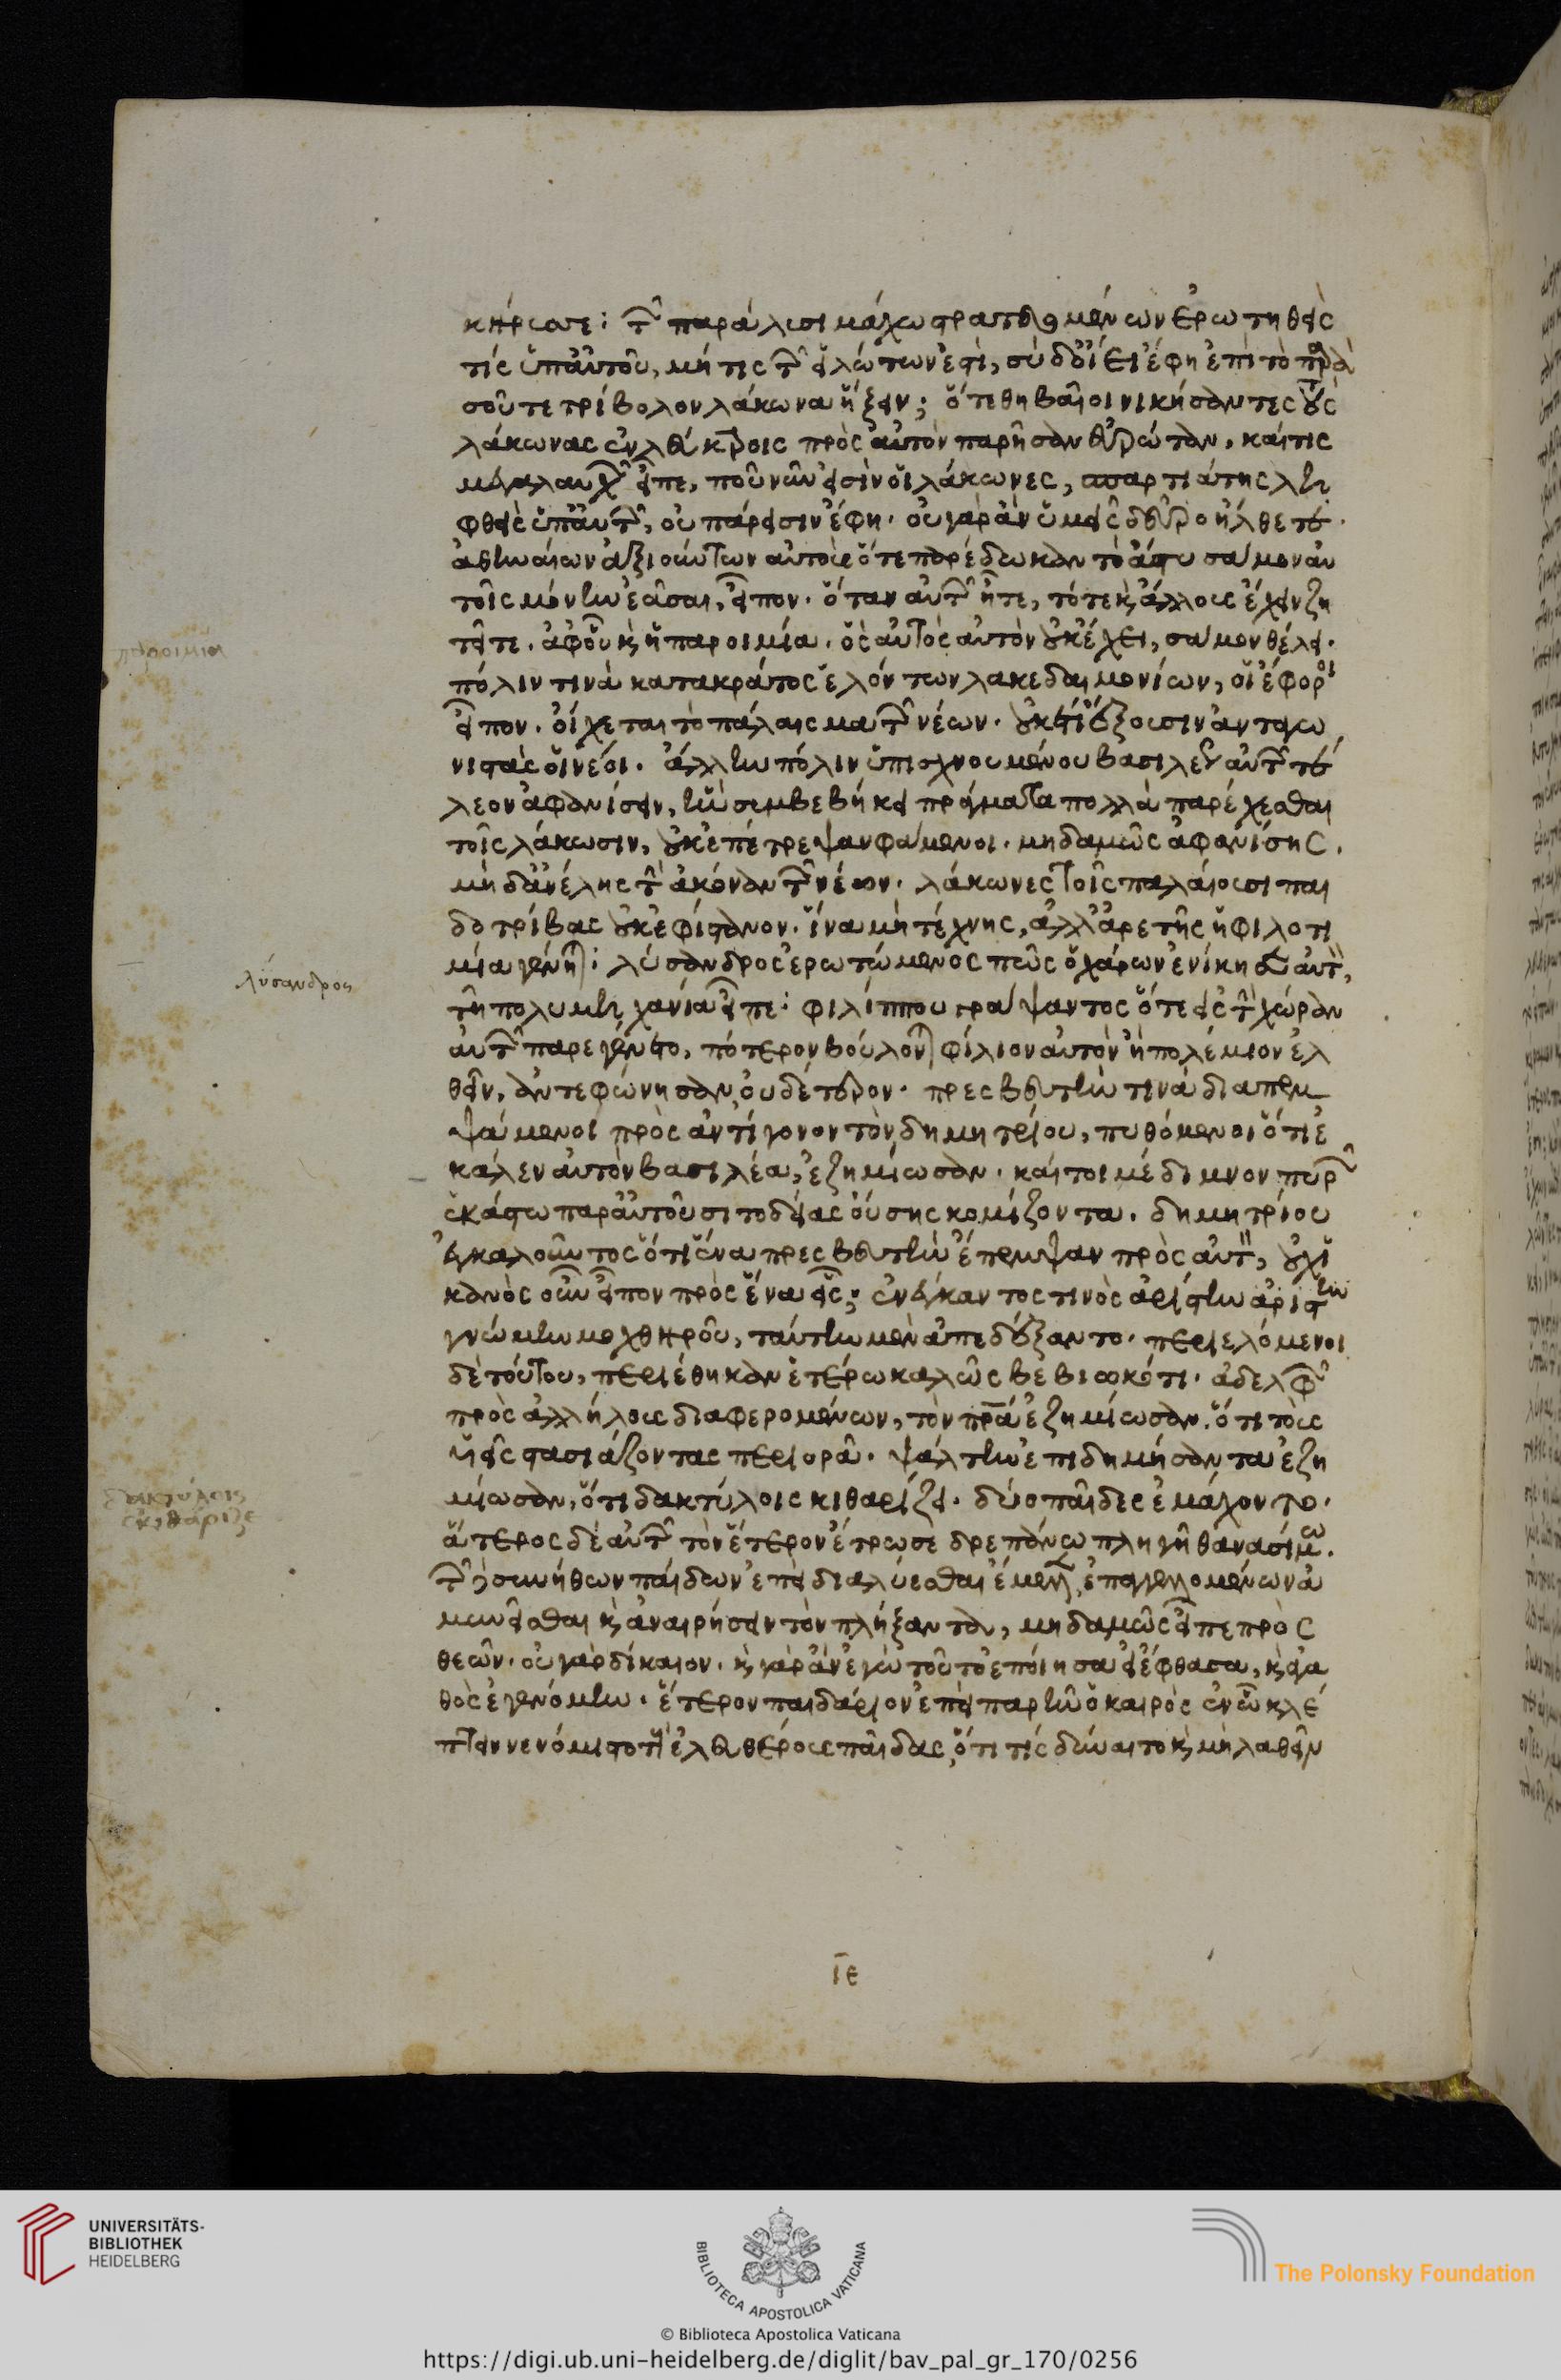 κήρωσε: τῶν παρὰ λυσιμάχω στρατευομένων ἐρωτηθεὶς
τίς ὑπ' αὐτοῦ, μή τις τῶν εἱλώτων ἐστὶ, σὺ δ' οἴει ἔφη ἐπὶ τὸ παρὰ
σοῦ τετρίβολον λάκωνα ἥξειν; ὅτε θηβαῖοι νικήσαντες τοὺς
λάκωνας ἐν λεύκτροις πρὸς αὐτὸν παρῆσαν εὐρώταν, καί τις
μεγαλαυχῶν εἶπε, ποῦ νῦν εἰσὶν οἱ λάκωνες, σπαρτιάτης λη
φθεὶς ὑπ' αὐτῶν, οὐ πάρεισιν ἔφη· οὐ γὰρ ἂν ὑμεῖς δεῦρο ἤλθετε·
ἀθηναίων ἀξιούντων αὐτοὺς ὅτε παρέδωκαν τὸ ἄστυ σάμον αὐ
τοῖς μόνην ἐᾶσαι, εἶπον· ὅταν αὐτῶν ἦτε, τότε καὶ ἄλλους ἔχειν ζη
τεῖτε· ἀφ' οὗ καὶ ἡ παροιμία· ὃς αὐτὸς αὑτὸν οὐκ ἔχει, σάμον θέλει·
πόλιν τινὰ κατακράτος ἑλόντων λακεδαιμονίων, οἱ ἔφοροι
εἶπον· οἴχεται τὸ πάλαισμα τῶν νέων· οὐκ ἔτι ἕξουσιν ἀνταγω
νιστὰς οἱ νέοι· ἄλλην πόλιν ὑπισχνουμένου βασιλέως αὐτῶν τέ
λεον ἀφανίσειν, ἣν συμβεβήκει πράγματα πολλὰ παρέχεσθαι
τοῖς λάκωσιν, οὐκ ἐπέτρεψαν φάμενοι· μηδαμῶς ἀφανίσης,
μηδ' ἀνέλης τὴν ἀκόναν τῶν νέων· λάκωνες τοῖς παλαίουσι παι
δοτρίβας οὐκ ἐφίστανον· ἵνα μὴ τέχνης, ἀλλ' ἀρετῆς ἡ φιλοτι
μία γένηται: λύσανδρος ἐρωτώμενος πῶς ὁ χάρων ἐνίκησεν αὐτὸν,
τῆ πολυμηχανία εἶπε: φιλίππου γράψαντος ὅτε εἰς τὴν χώραν
αὐτῶν παρεγένετο, πότερον βούλονται φίλιον αὐτὸν ἢ πολέμιον ἐλ
θεῖν, ἀντεφώνησαν, οὐδέτερον· πρεσβευτὴν τινὰ διαπεμ
ψάμενοι πρὸς ἀντίγονον τὸν δημητρίου, πυθόμενοι ὅτι ἐ
κάλειν αὐτὸν βασιλέα, ἐζημίωσαν· καίτοι μέδιμνον πυρῶν
ἑκάστω παρ' αὐτοῦ σιτοδείας οὔσης κομίζοντα· δημητρίου
ἐγκαλοῦντος ὅτι ἕνα πρεσβευτὴν ἔπεμψαν πρὸς αὐτὸν, οὐχ ἱ
κανὸς οὖν εἶπον πρὸς ἕνα εἷς; ἐνεγκαντος τινὸς ἀρίστην ἀρίστην
γνώμην μοχθηροῦ, ταύτην μὲν ἀπεδέξαντο· περιελόμενοι
δὲ τούτου, περιέθηκαν ἑτέρω καλῶς βεβιωκότι· ἀδελφῶν
πρὸς ἀλλήλους διαφερομένων, τὸν πρα ἐζημίωσαν, ὅτι τοὺς
υἱεῖς στασιάζοντας περιορᾶ· ψάλτην ἐπιδημήσαντα ἐζη
μίωσαν, ὅτι δακτύλοις κιθαρίζει· δύο παῖδες ἐμάχοντο·
ἅτερος δὲ αὐτῶν τὸν ἕτερον ἔτρωσε δρεπάνω πληγῆ θανασίμω·
τῶν δὲ συνήθων παίδων ἐπεὶ διαλύεσθαι ἔμελλον, ἐπαγγελλομένων ἀ
μυνεῖσθαι καὶ ἀναιρήσειν τὸν πλήξαντα, μηδαμῶς εἶπε πρὸς
θεῶν· οὐ γὰρ δίκαιον· καὶ γὰρ ἂν ἐγὼ τοῦτο ἐποίησα εἰ ἔφθασα, καὶ ἀγα
θὸς ἐγενόμην· ἕτερον παιδάριον ἐπεὶ παρῆν ὁ καιρὸς ἐν ᾧ κλέ
πτειν νενόμιστο τοὺς ἐλευθέρους παῖδας, ὅτι τίς δύναιτο καὶ μὴ λαθεῖν
ιε
παροιμία
λύσανδρος
δακτύλοις
ἐκιθάριζε
UNIVERSITÄTS-
BIBLIOTHEK
HEIDELBERG
BIBLIOTECA APOSTOLICA VATICANA
© Biblioteca Apostolica Vaticana
The Polonsky Foundation
https://digi.ub.uni-heidelberg.de/diglit/bav_pal_gr_170/0256